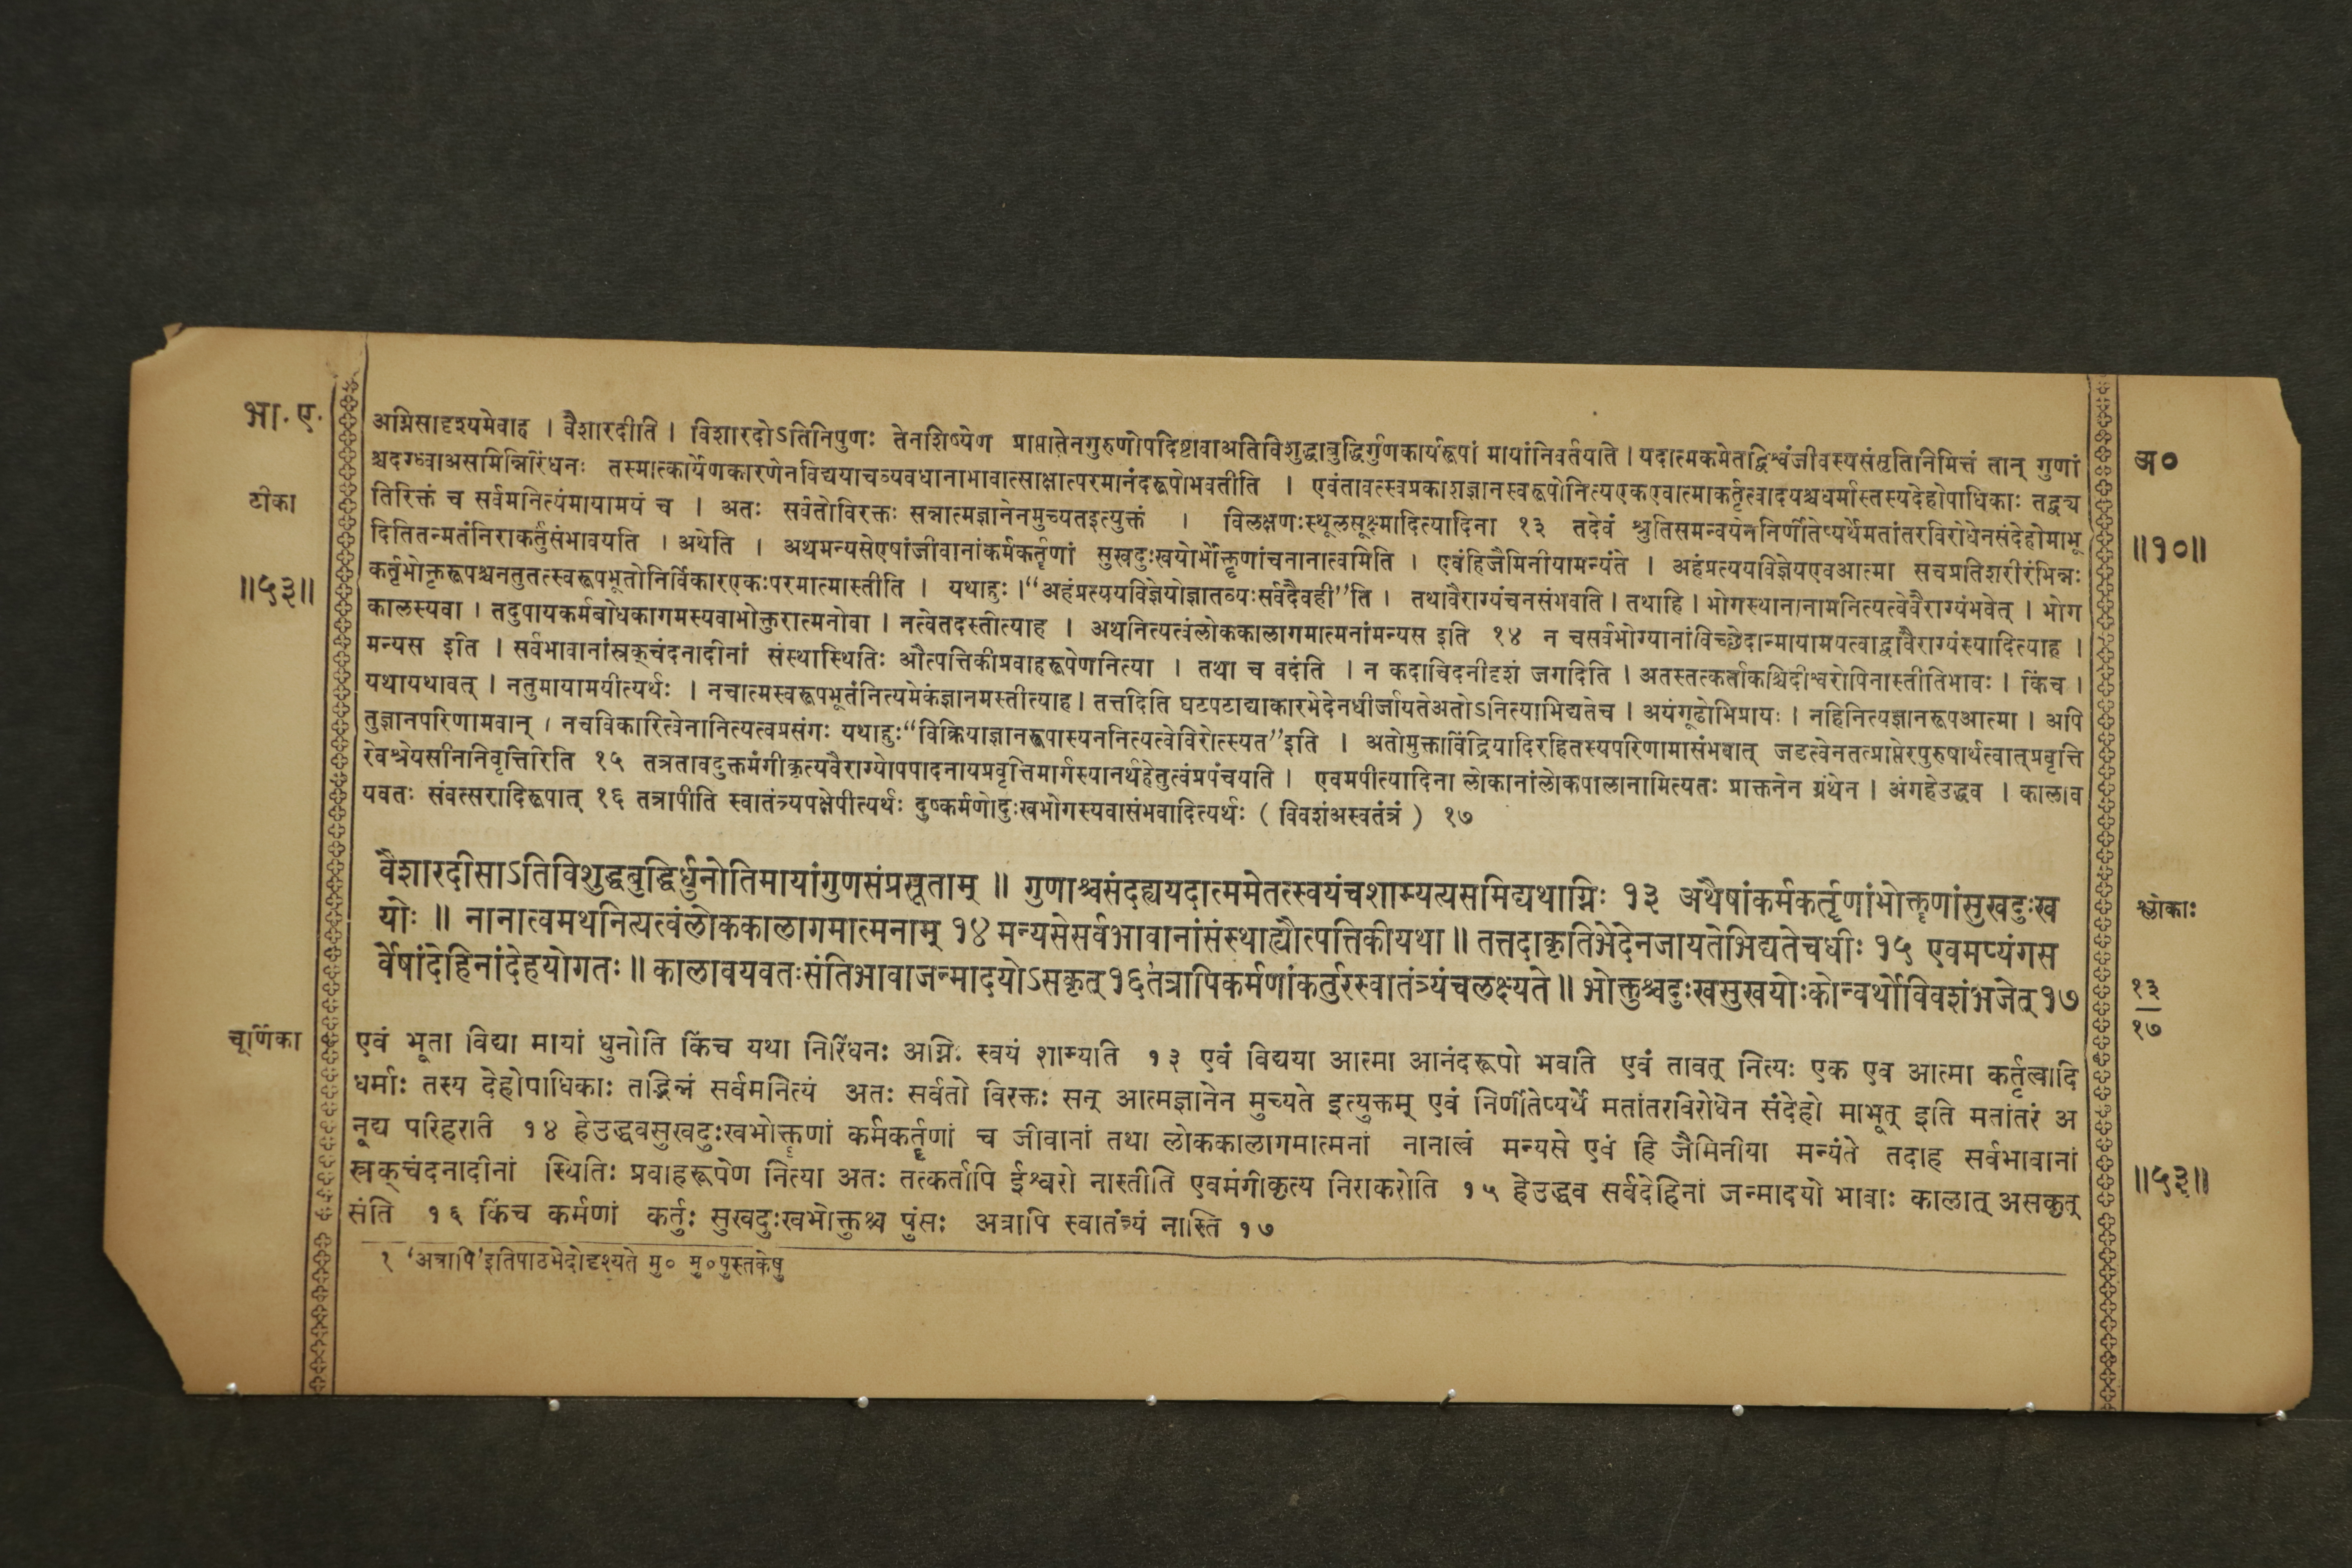 भा. ए.
टीका
॥५३॥
अग्निसादृश्यमेवाह । वैशारदीति । विशारदोऽतिनिपुणः तेनशिष्येण प्राप्तातेनगुरुणोपदिष्टावाअतिविशुद्धाबुद्धिर्गुणकार्यरूपां मायांनिवर्तयति । यदात्मकमेतद्विश्वंजीवस्यसंसृतिनिमित्तं तान् गुणां
श्चदग्ध्वाअसमिन्निरिंधनः तस्मात्कार्येणकारणेनविद्ययाचव्यवधानाभावात्साक्षात्परमानंदरूपोभवतीति । एवंतावत्स्वप्रकाशज्ञानस्वरूपोनित्यएकएवात्माकर्तृत्वादयश्चधर्मास्तस्यदेहोपाधिकाः तद्व्य
तिरिक्तं च सर्वमनित्यंमायामयं च । अतः सर्वतोविरक्तः सन्नात्मज्ञानेनमुच्यतइत्युक्तं । विलक्षणःस्थूलसूक्ष्मादित्यादिना १३ तदेवं श्रुतिसमन्वयेननिर्णीतेप्यर्थेमतांतरविरोधेनसंदेहोमाभू
दितितन्मतंनिराकर्तुंसंभावयति । अथेति । अथमन्यसेएषांजीवानांकर्मकर्तॄणां सुखदुःखयोर्भोक्तॄणांचनानात्वमिति । एवंहिजैमिनीयामन्यंते । अहंप्रत्ययविज्ञेयएवआत्मा सचप्रतिशरीरंभिन्नः
कर्तृभोक्तृरूपश्चनतुतत्स्वरूपभूतोनिर्विकारएकःपरमात्मास्तीति । यथाहुः ।“अहंप्रत्ययविज्ञेयोज्ञातव्यःसर्वदैवही”ति । तथावैराग्यंचनसंभवति । तथाहि । भोगस्थानानामनित्यत्वेवैराग्यंभवेत् । भोग
कालस्यवा । तदुपायकर्मबोधकागमस्यवाभोक्तुरात्मनोवा । नत्वेतदस्तीत्याह । अथनित्यत्वंलोककालागमात्मनांमन्यस इति १४ न चसर्वभोग्यानांविच्छेदान्मायामयत्वाद्वावैराग्यंस्यादित्याह ।
मन्यस इति । सर्वभावानांस्रक्चंदनादीनां संस्थास्थितिः औत्पत्तिकीप्रवाहरूपेणनित्या । तथा च वदंति । न कदाचिदनीदृशं जगदिति । अतस्तत्कर्ताकश्चिदीश्वरोपिनास्तीतिभावः । किंच ।
यथायथावत् । नतुमायामयीत्यर्थः । नचात्मस्वरूपभूतंनित्यमेकंज्ञानमस्तीत्याह । तत्तदिति घटपटाद्याकारभेदेनधीर्जायतेअतोऽनित्याभिद्यतेच । अयंगूढोभिप्रायः । नहिनित्यज्ञानरूपआत्मा । अपि
तुज्ञानपरिणामवान् । नचविकारित्वेनानित्यत्वप्रसंगः यथाहुः“विक्रियाज्ञानरूपास्यननित्यत्वेविरोत्स्यत”इति । अतोमुक्ताविंद्रियादिरहितस्यपरिणामासंभवात् जडत्वेनतत्प्राप्तेरपुरुषार्थत्वात्प्रवृत्ति
रेवश्रेयसीननिवृत्तिरिति १५ तत्रतावदुक्तमंगीकृत्यवैराग्योपपादनायप्रवृत्तिमार्गस्यानर्थहेतुत्वंप्रपंचयति । एवमपीत्यादिना लोकानांलोकपालानामित्यतः प्राक्तनेन ग्रंथेन । अंगहेउद्धव । कालाव
यवतः संवत्सरादिरूपात् १६ तत्रापीति स्वातंत्र्यपक्षेपीत्यर्थः दुष्कर्मणोदुःखभोगस्यवासंभवादित्यर्थः ( विवशंअस्वतंत्रं ) १७
वैशारदीसाऽतिविशुद्धबुद्धिर्धुनोतिमायांगुणसंप्रसूताम् ॥ गुणाश्चसंदह्ययदात्ममेतत्स्वयंचशाम्यत्यसमिद्यथाग्निः १३ अथैषांकर्मकर्तॄणांभोक्तॄणांसुखदुःख
योः ॥ नानात्वमथनित्यत्वंलोककालागमात्मनाम् १४ मन्यसेसर्वभावानांसंस्थाह्यौत्पत्तिकीयथा ॥ तत्तदाकृतिभेदेनजायतेभिद्यतेचधीः १५ एवमप्यंगस
र्वेषांदेहिनांदेहयोगतः ॥ कालावयवतःसंतिभावाजन्मादयोऽसकृत् १६ तत्रापिकर्मणांकर्तुरस्वातंत्र्यंचलक्ष्यते ॥ भोक्तुश्चदुःखसुखयोःकोन्वर्थोविवशंभजेत् १७
चूर्णिका
एवं भूता विद्या मायां धुनोति किंच यथा निरिंधनः अग्निः स्वयं शाम्यति १३ एवं विद्यया आत्मा आनंदरूपो भवति एवं तावत् नित्यः एक एव आत्मा कर्तृत्वादि
धर्माः तस्य देहोपाधिकाः तद्भिन्नं सर्वमनित्यं अतः सर्वतो विरक्तः सन् आत्मज्ञानेन मुच्यते इत्युक्तम् एवं निर्णीतेप्यर्थे मतांतरविरोधेन संदेहो माभूत् इति मतांतरं अ
नूद्य परिहरति १४ हेउद्धवसुखदुःखभोक्तॄणां कर्मकर्तॄणां च जीवानां तथा लोककालागमात्मनां नानात्वं मन्यसे एवं हि जैमिनीया मन्यंते तदाह सर्वभावानां
स्रक्चंदनादीनां स्थितिः प्रवाहरूपेण नित्या अतः तत्कर्तापि ईश्वरो नास्तीति एवमंगीकृत्य निराकरोति १५ हेउद्धव सर्वदेहिनां जन्मादयो भावाः कालात् असकृत्
संति १६ किंच कर्मणां कर्तुः सुखदुःखभोक्तुश्च पुंसः अत्रापि स्वातंत्र्यं नास्ति १७
१ ‘अत्रापि’इतिपाठभेदोदृश्यते मु० मु०पुस्तकेषु
अ०
॥१०॥
श्लोकाः
१३
१७
॥५३॥